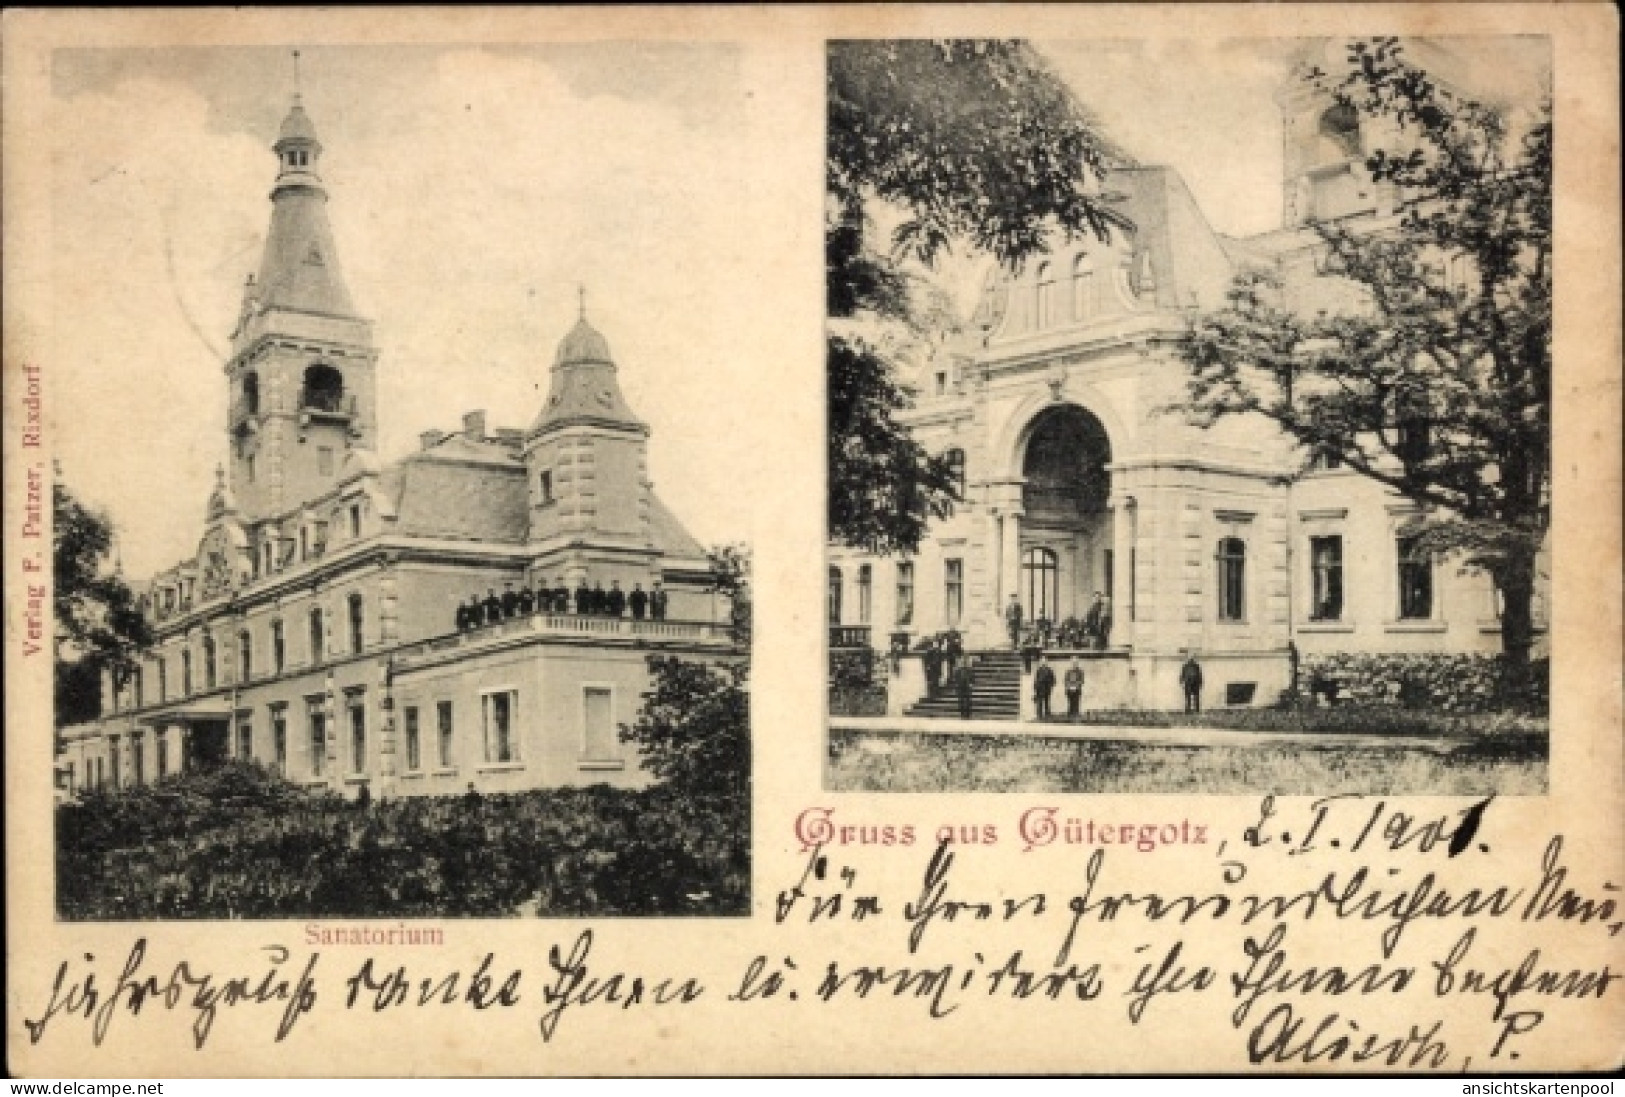 Verlag F. Patzer, Rixdorf
Sanatorium
Gruss aus Gütergotz, 2.I.1901.
Für Ihren freundlichen Neu-
jahrsgruß dankt Ihnen u. erwidert ihn Ihnen bestens
P.
www.delcampe.net
ansichtskartenpool